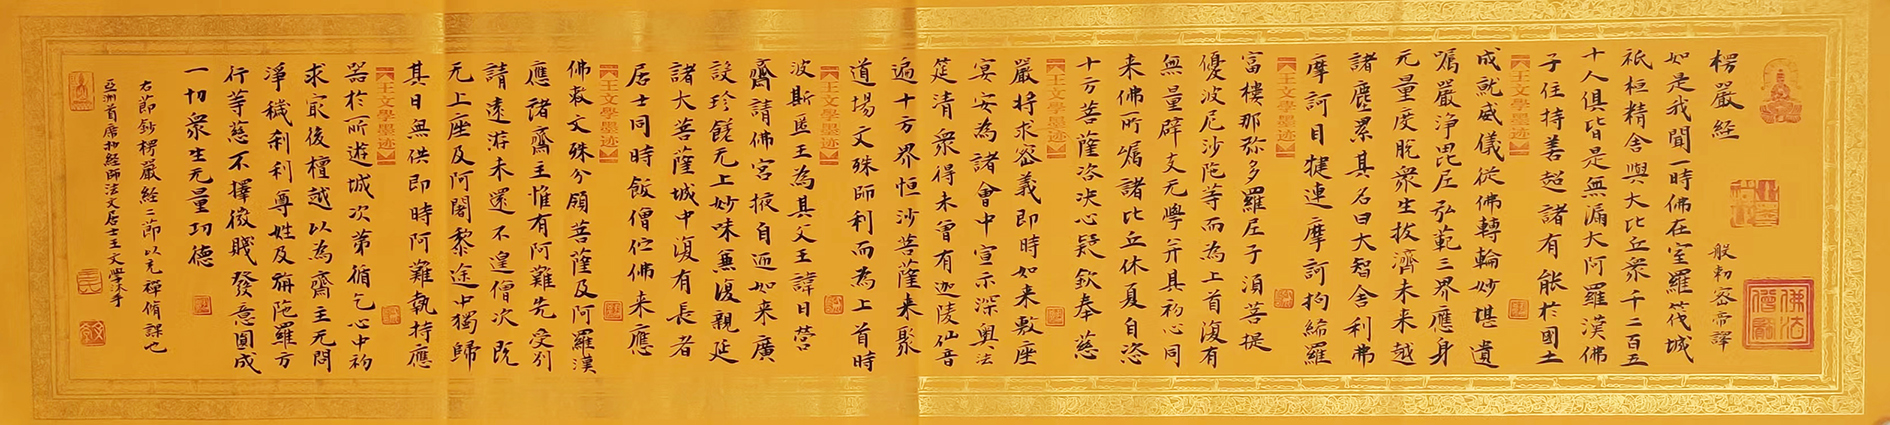 楞嚴経
般剌密帝譯
如是我聞一時佛在室羅筏城
祇桓精舍與大比丘衆千二百五
十人俱皆是無漏大阿羅漢佛
子住持善超諸有能於國土
成就威儀從佛轉輪妙堪遺
囑嚴浄毘尼弘範三界應身
无量度脱衆生拔濟未来越
諸塵累其名曰大智舍利弗
摩訶目犍連摩訶拘絺羅
富樓那弥多羅尼子須菩提
優波尼沙陁等而為上首復有
無量辟支无學并其初心同
来佛所属諸比丘休夏自恣
十方菩薩咨决心疑欽奉慈
嚴将求密義即時如来敷座
宴安為諸會中宣示深奥法
筵清衆得未曾有迦陵仙音
遍十方界恒沙菩薩来聚
道場文殊師利而為上首時
波斯匿王為其父王諱日營
齋請佛宮掖自迎如来廣
設珍饈无上妙味兼復親延
諸大菩薩城中復有長者
居士同時飯僧伫佛来應
佛敕文殊分領菩薩及阿羅漢
應諸齋主惟有阿難先受别
請遠游未還不遑僧次既
无上座及阿闍黎途中獨歸
其日無供即時阿難執持應
器於所遊城次第循乞心中初
求最後檀越以為齋主无問
浄穢刹利尊姓及旃陁羅方
行等慈不擇微賤發意圓成
一切衆生无量功德
右節鈔楞嚴経二節以充禪脩課也
亞洲首席抄経師法文居士王文學沐手
王文學墨迹
王文學墨迹
王文學墨迹
王文學墨迹
王文學墨迹
王文學墨迹